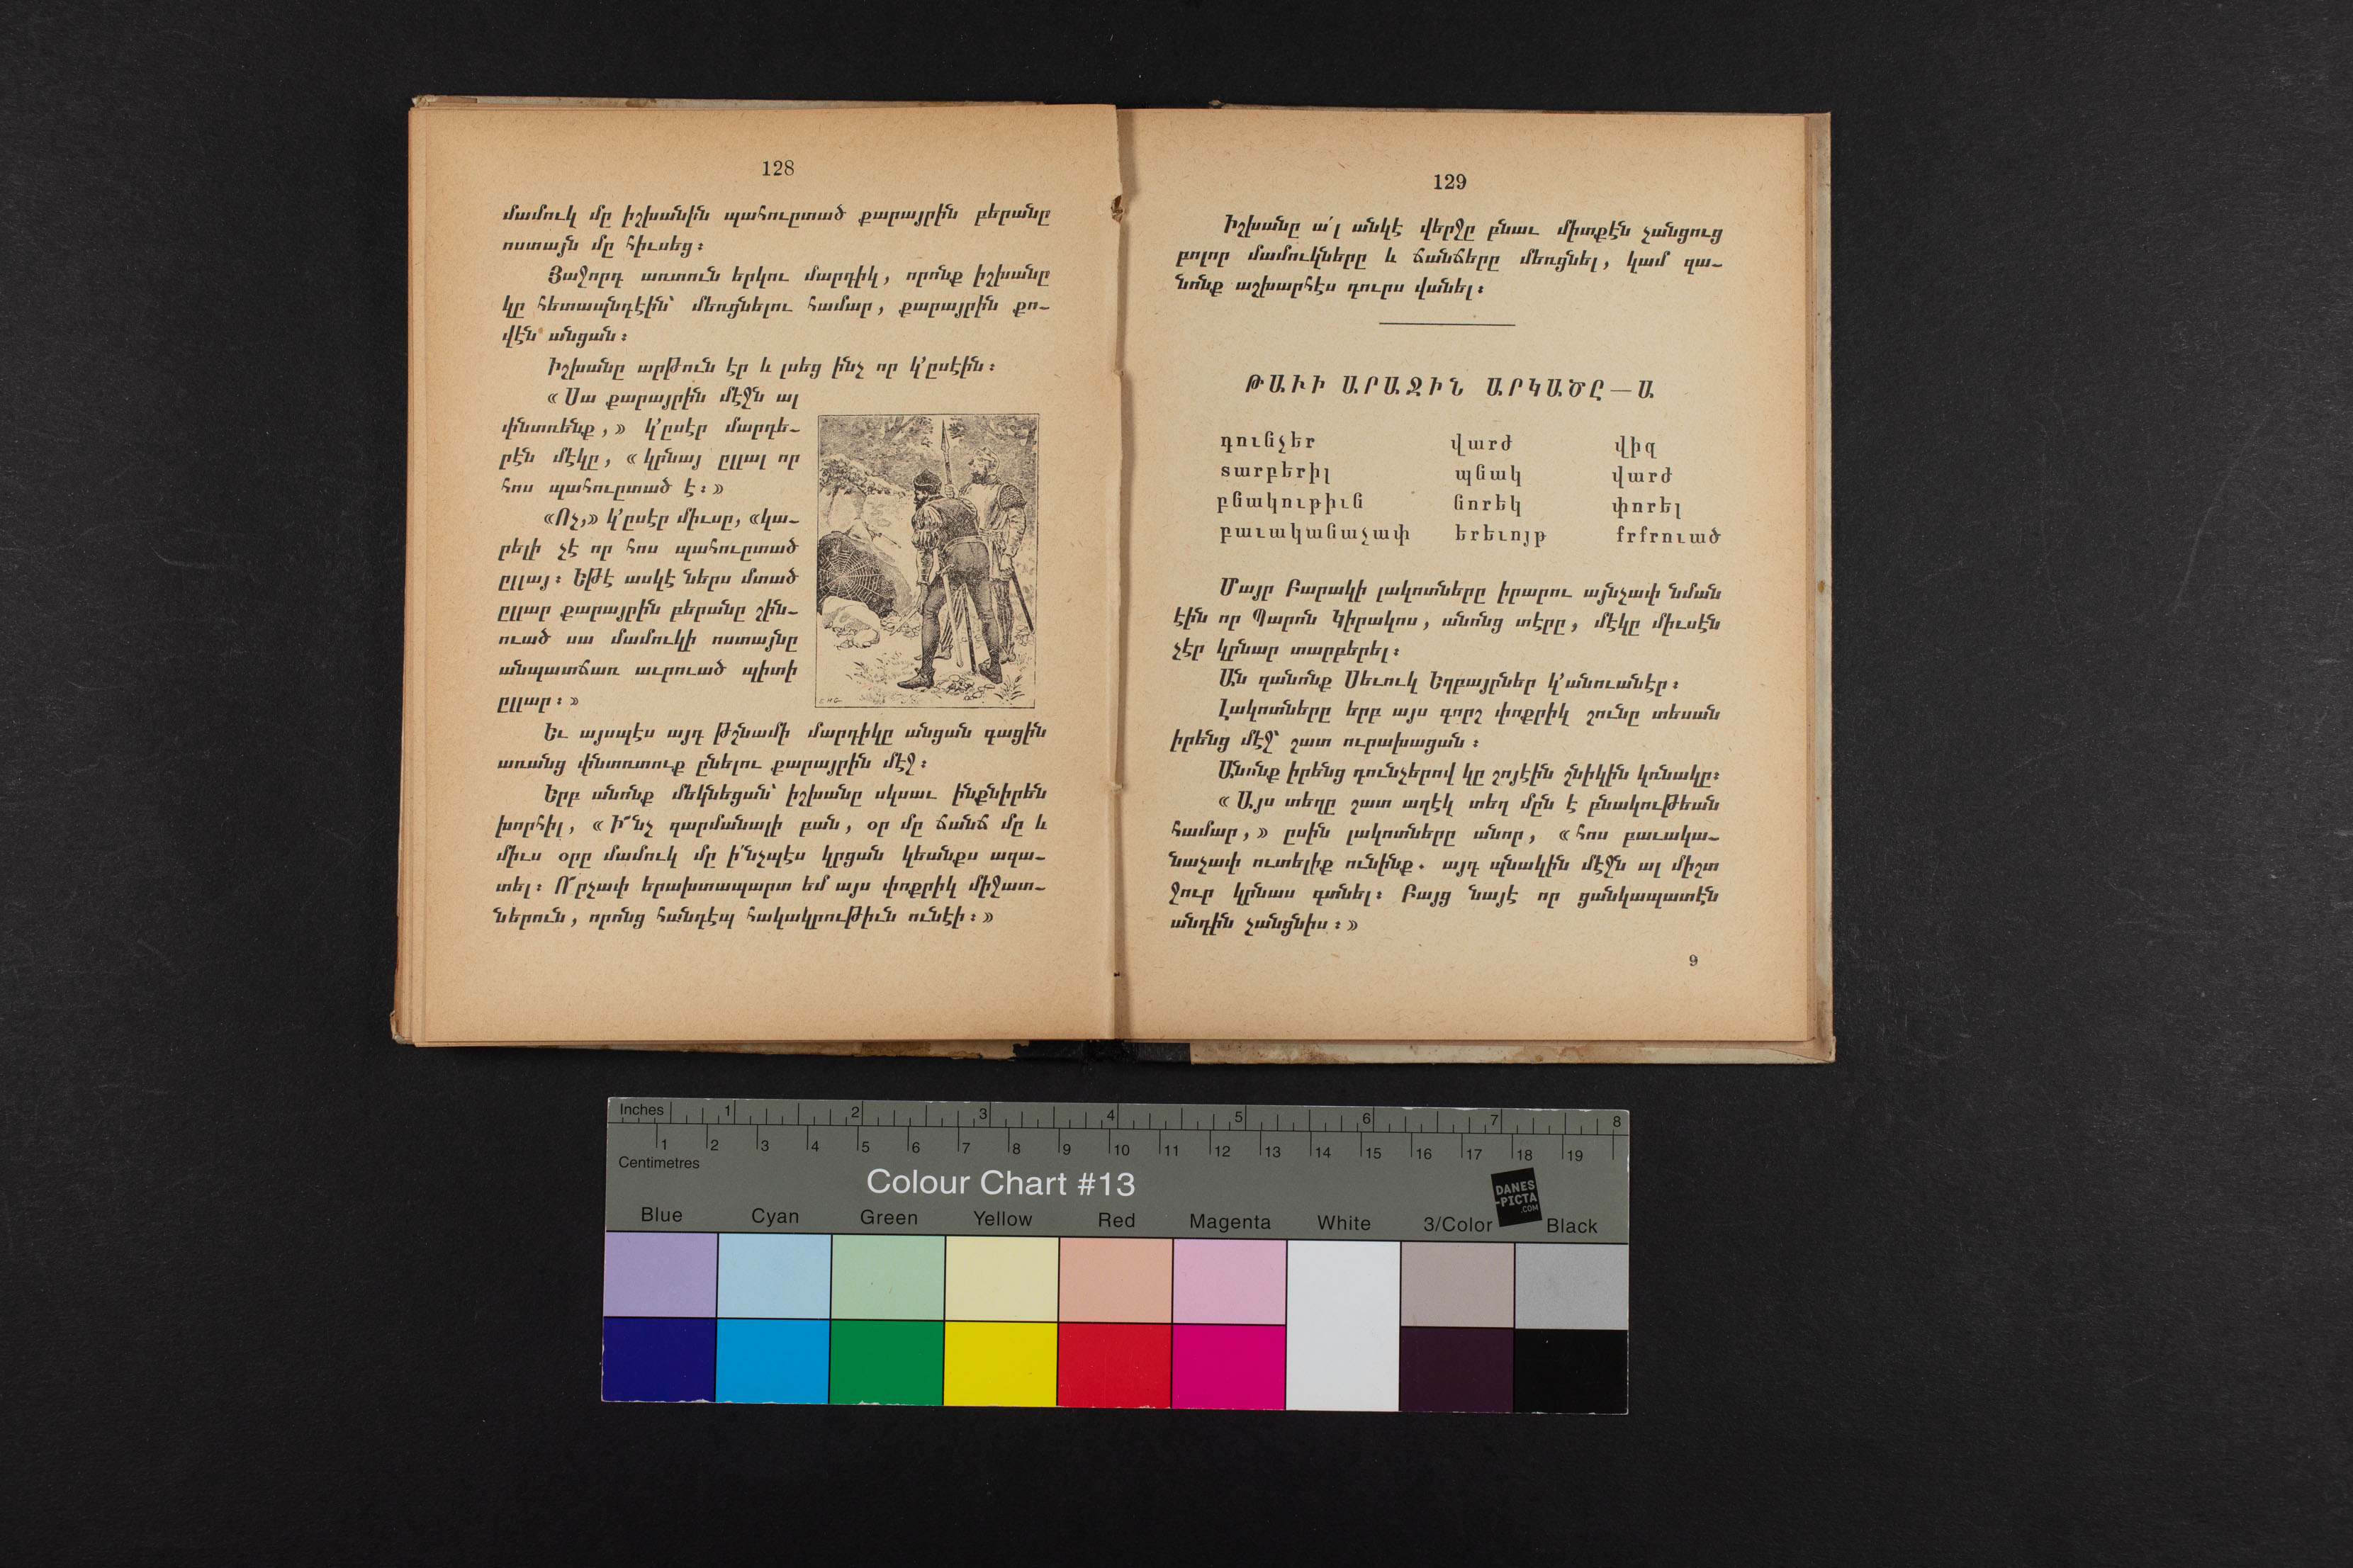 128
մամուկ մը իշխանին պահուըտած քարայրին բերանը
ոստայն մը հիւսեց։
Յաջորդ առտուն երկու մարդիկ, որոնք իշխանը
կը հետապնդէին՝ մեռցնելու համար, քարայրին քո-
վէն անցան։
Իշխանը արթուն էր և լսեց ինչ որ կ՚ըսէին։
«Սա քարայրին մէջն ալ
փնտռենք,» կ՚ըսէր մարդե-
րէն մէկը, «կրնայ ըլլալ որ
հոս պահուըտած է։»
«Ոչ,» կ՚ըսէր միւսը, «կա-
րելի չէ որ հոս պահուըտած
ըլլայ։ Եթէ ասկէ ներս մտած
ըլլար քարայրին բերանը շին-
ուած սա մամուկի ոստայնը
անպատճառ աւրուած պիտի
ըլլար։»
E.H.G.
Եւ այսպէս այդ թշնամի մարդիկը անցան գացին
առանց փնտռտուք ընելու քարայրին մէջ։
Երբ անոնք մեկնեցան՝ իշխանը սկսաւ ինքնիրեն
խորհիլ, «Ի՜նչ զարմանալի բան, օր մը ճանճ մը և
միւս օրը մամուկ մը ի՛նչպէս կրցան կեանքս ազա-
տել։ Ո՜րչափ երախտապարտ եմ այս փոքրիկ միջատ-
ներուն, որոնց հանդէպ հակակրութիւն ունէի։»
129
Իշխանը ա՛լ անկէ վերջը բնաւ միտքէն չանցուց
բոլոր մամուկները և ճանճերը մեռցնել, կամ զա-
նոնք աշխարհէս դուրս վանել։
ԹԱՒԻ ԱՐԱՋԻՆ ԱՐԿԱԾԸ—Ա
դունչեր վարժ վիզ
տարբերիլ պնակ վարժ
բնակութիւն նորեկ փորել
բաւականաչափ երեւոյթ քրքրուած
Մայր Բարակի լակոտները իրարու այնչափ նման
էին որ Պարոն Կիրակոս, անոնց տէրը, մէկը միւսէն
չէր կրնար տարբերել։
Ան զանոնք Սեւուկ Եղբայրներ կ՚անուանէր։
Լակոտները երբ այս գորշ փոքրիկ շունը տեսան
իրենց մէջ՝ շատ ուրախացան։
Անոնք իրենց դունչերով կը շոյէին շնիկին կռնակը։
«Այս տեղը շատ աղէկ տեղ մըն է բնակութեան
համար,» ըսին լակոտները անոր, «հոս բաւակա-
նաչափ ուտելիք ունինք. այդ պնակին մէջն ալ միշտ
ջուր կրնաս գտնել։ Բայց նայէ որ ցանկապատէն
անդին չանցնիս։»
9
Inches 1 2 3 4 5 6 7 8
1 2 3 4 5 6 7 8 9 10 11 12 13 14 15 16 17 18 19
Centimetres
Colour Chart #13
DANES
-PICTA
.COM
Blue Cyan Green Yellow Red Magenta White 3/Color Black